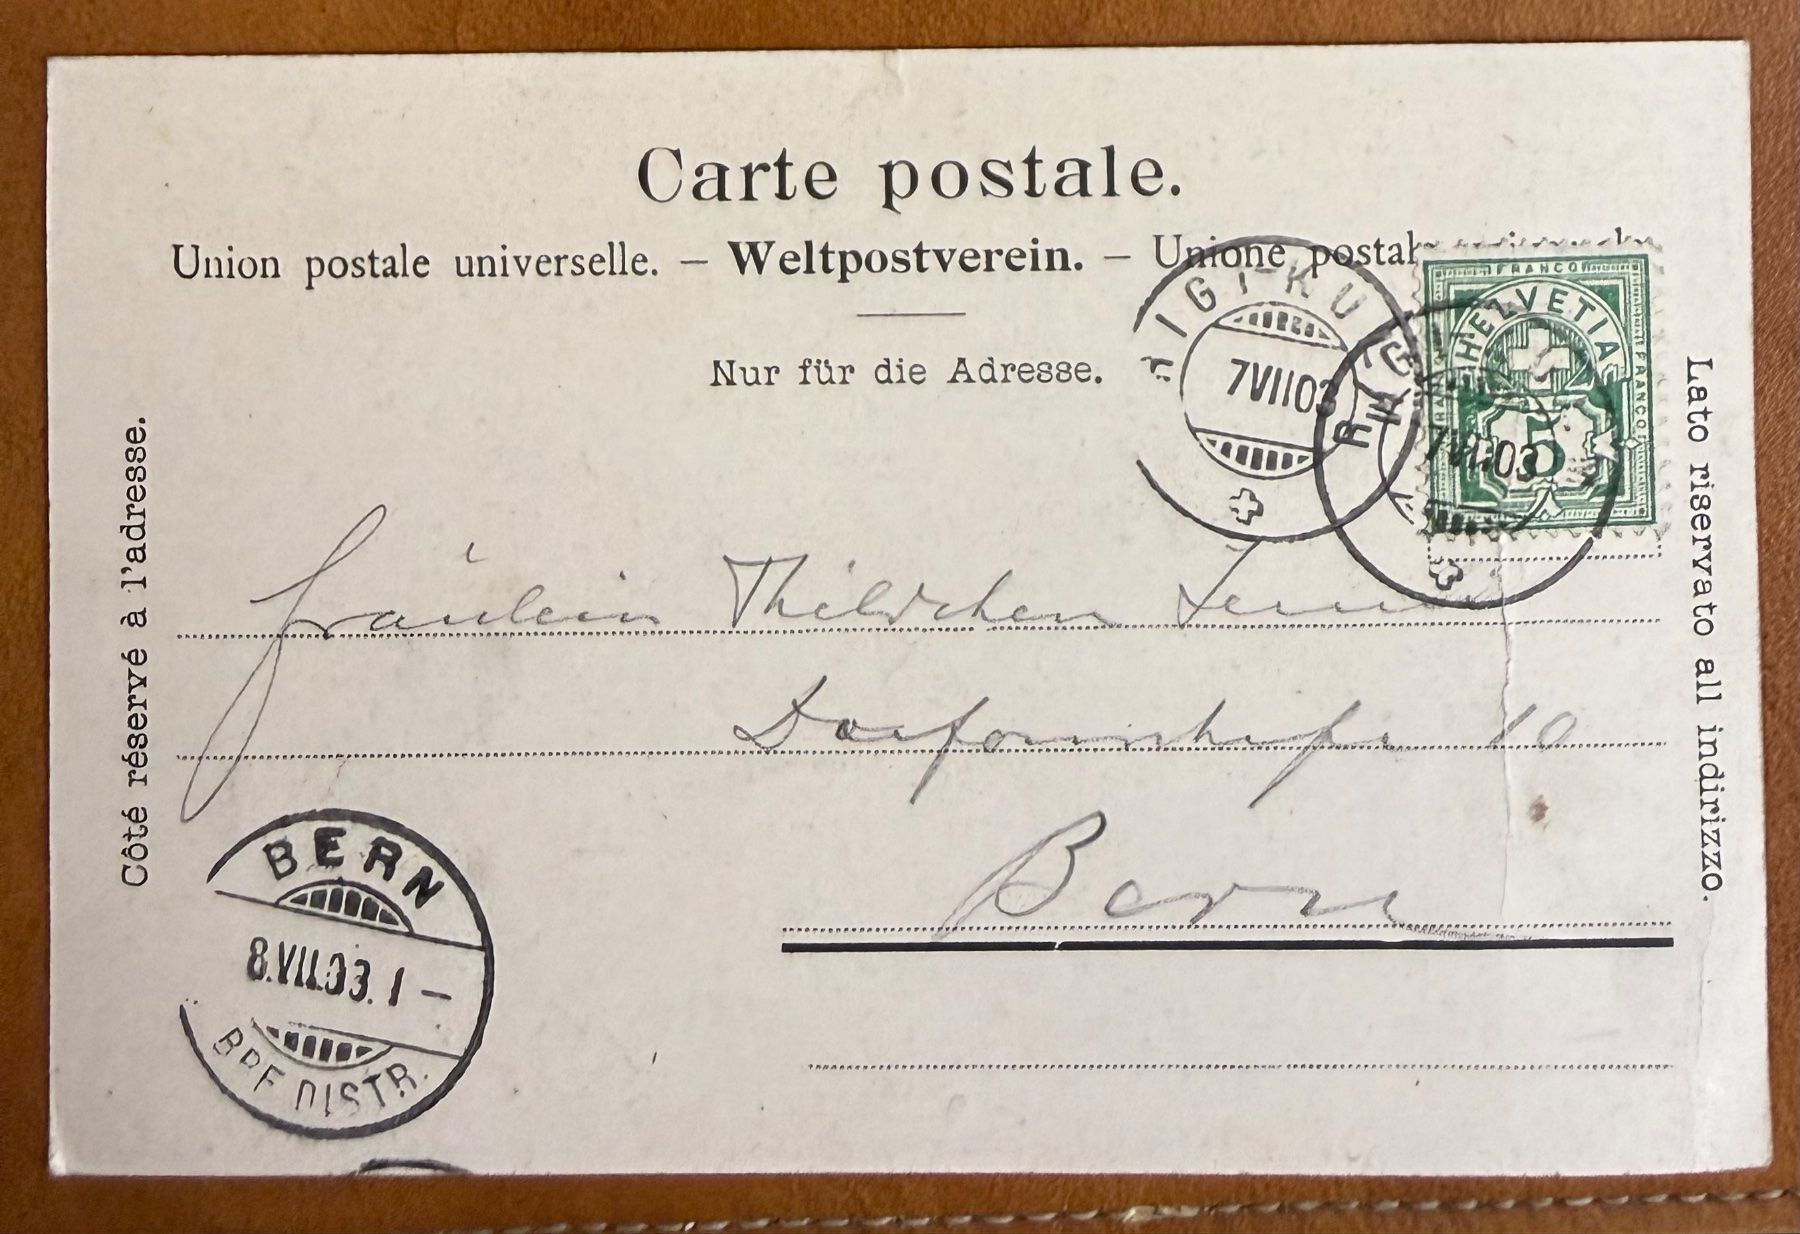 Carte postale.
Union postale universelle. – Weltpostverein. – Unione postale
Nur für die Adresse.
Côté réservé à l'adresse.
Lato riservato all indirizzo.
RIGI-KU
7VII03
RIGI-K
7VII03
FRANCO
HELVETIA
FRANCO
FRANCO
5
Fräulein Thildchen
10
Bern
BERN
8.VII.03.1–
BRF DISTR.